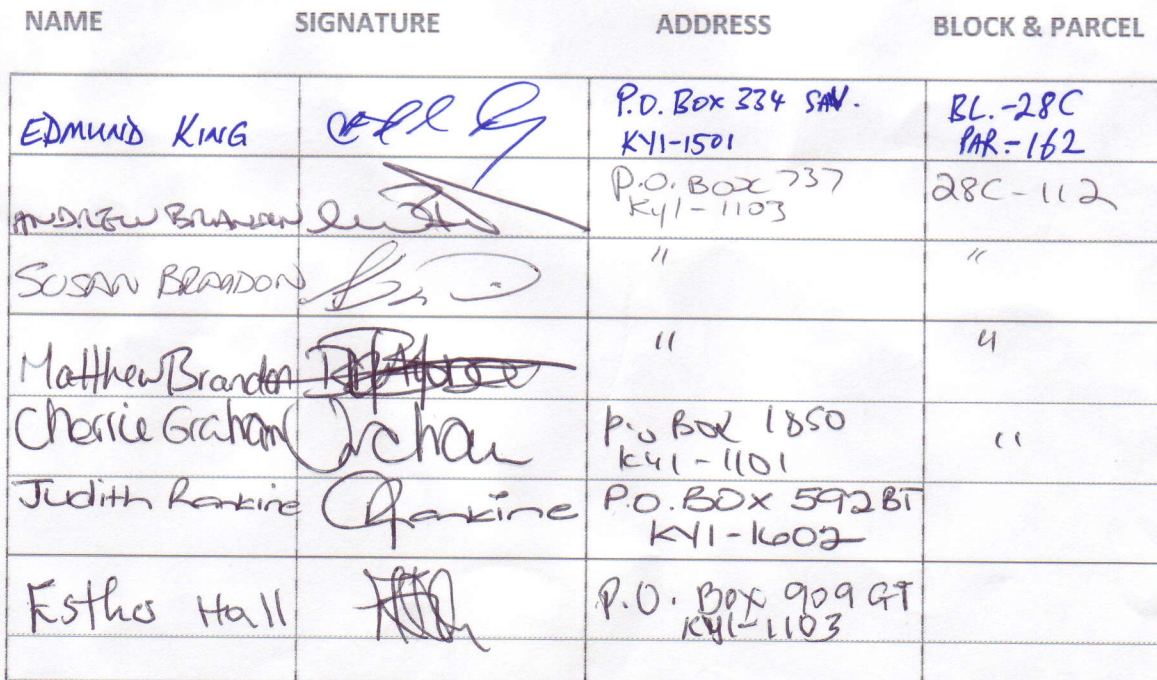 NAME SIGNATURE ADDRESS BLOCK & PARCEL
EDMUND KING P.O. BOX 334 SAV. BL.-28C
KY1-1501 PAR.-162
ANDREW BRANDON P.O. BOX 737 28C-112
KY1-1103
SUSAN BRANDON " "
Matthew Brandon " "
Cherrie Graham P.O BOX 1850 "
KY1-1101
Judith Rankine Rankine P.O. BOX 592 BT
KY1-1602
Esther Hall P.O. BOX 909 GT
KY1-1103